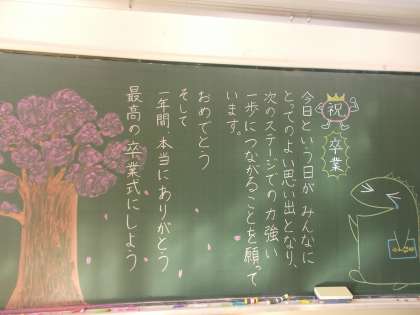 祝
卒業
今日という日が みんなに
とってのよい思い出となり、
次のステージでの力強い
一歩につながることを願って
います。
おめでとう
そして
一年間、本当にありがとう
最高の卒業式にしよう